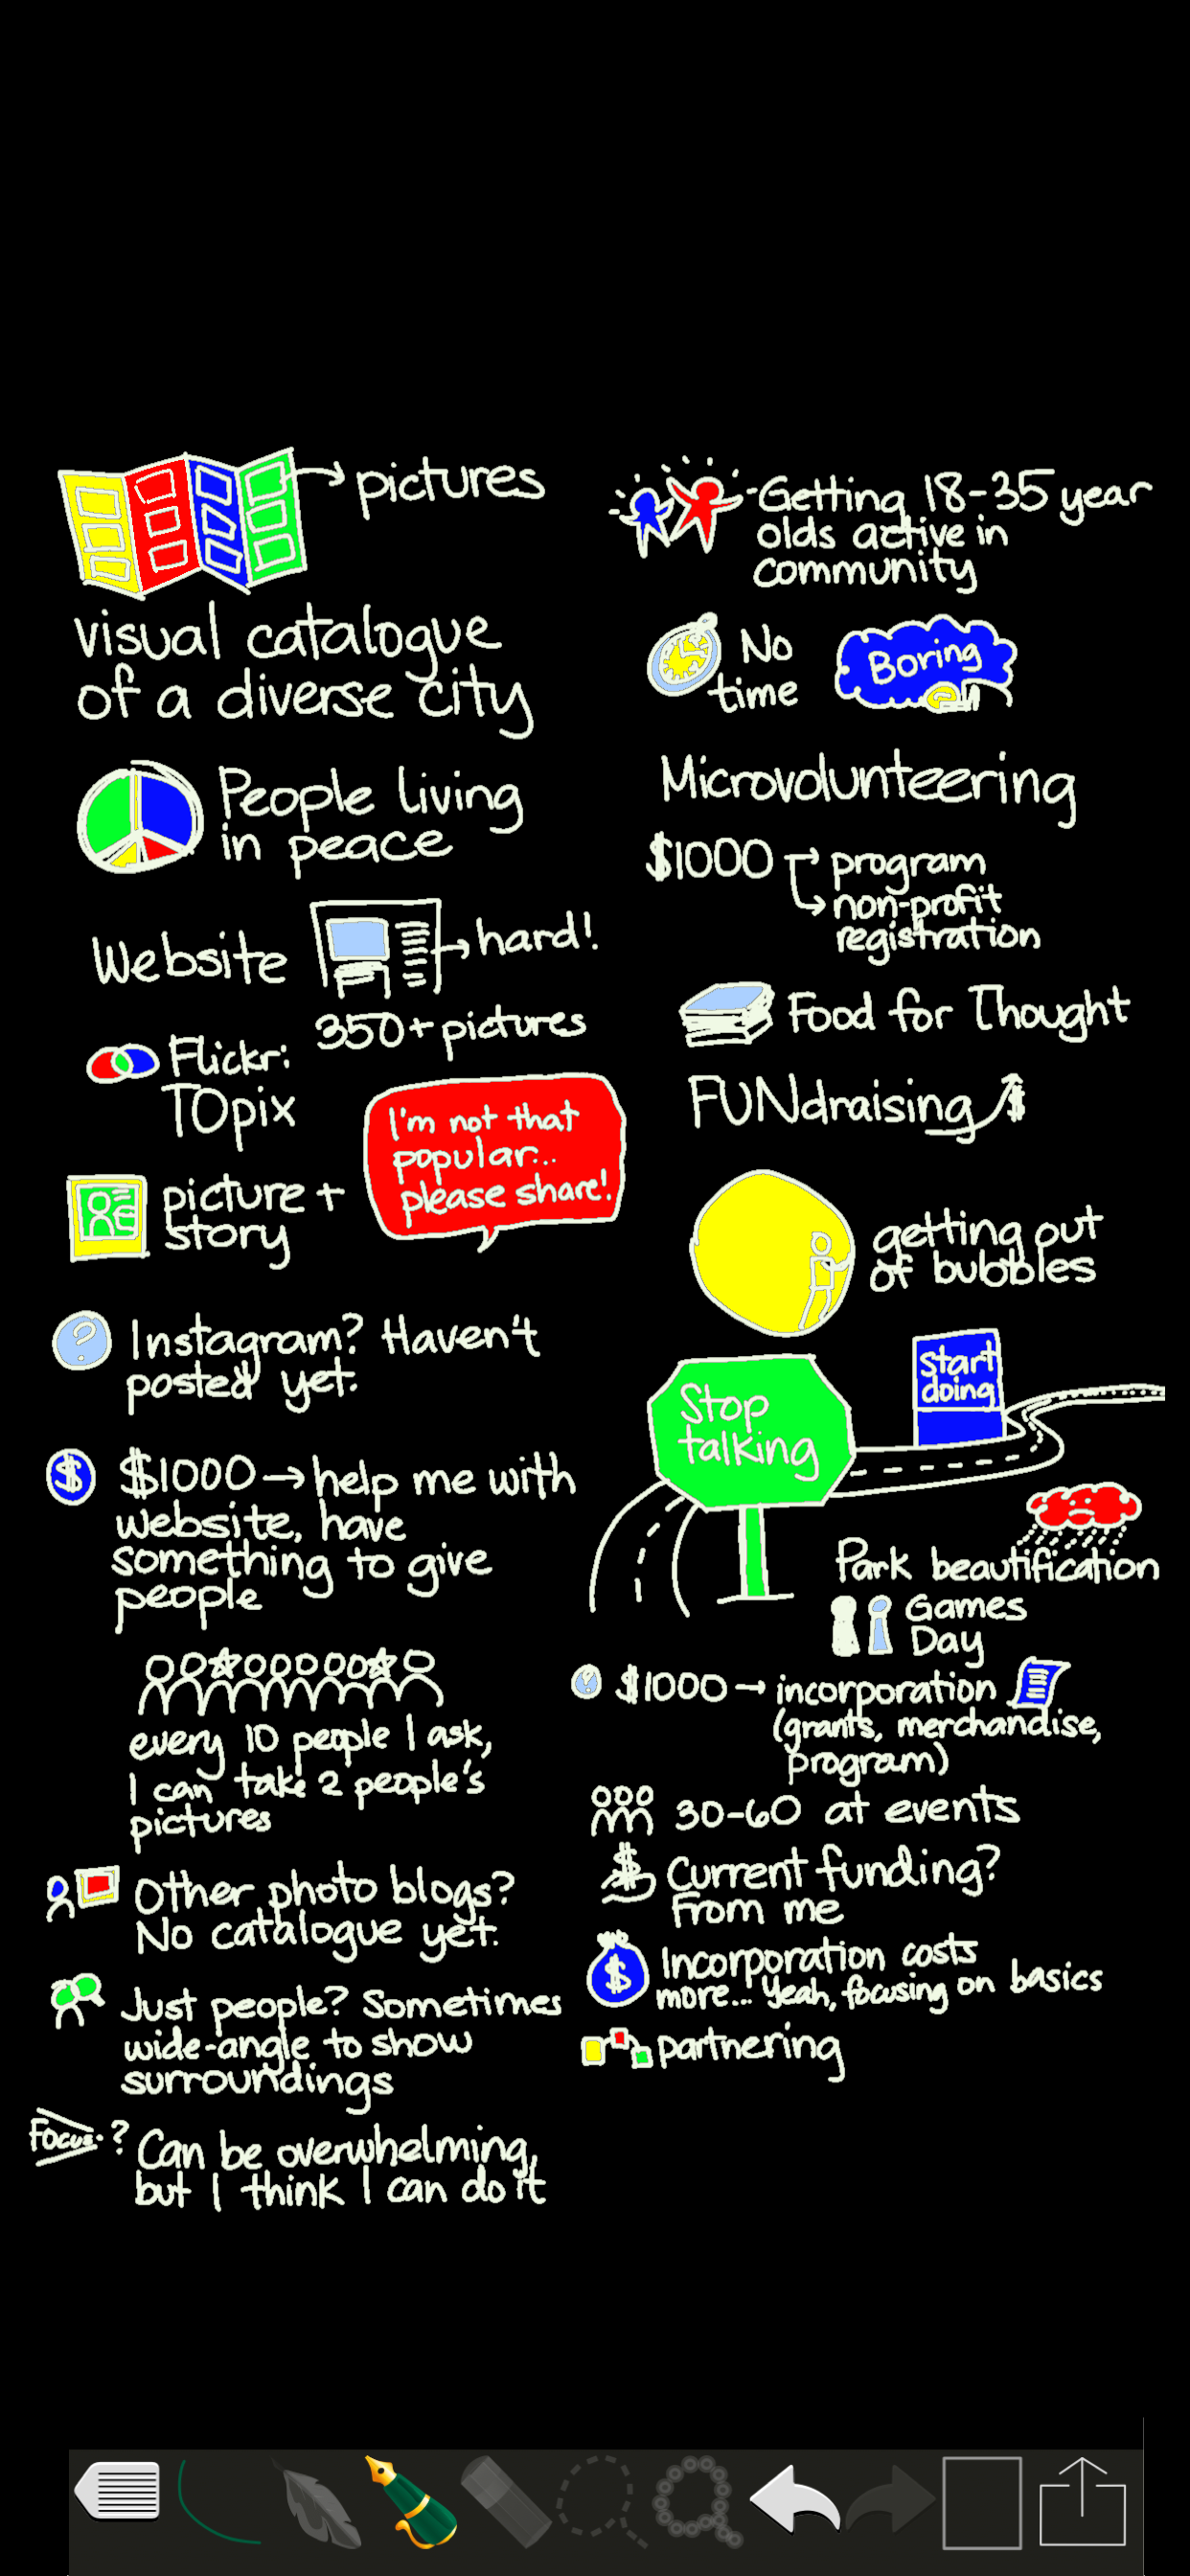 pictures
visual catalogue
of a diverse city
People living
in peace
Website
hard!
350+ pictures
Flickr:
TOpix
I'm not that
popular...
please share!
picture +
story
?
Instagram? Haven't
posted yet.
$
$1000 → help me with
website, have
something to give
people
every 10 people I ask,
I can take 2 people's
pictures
Other photo blogs?
No catalogue yet.
Just people? Sometimes
wide-angle to show
surroundings
Focus.?
Can be overwhelming,
but I think I can do it
Getting 18-35 year
olds active in
community
No
time
Boring
Microvolunteering
$1000 → program
→ non-profit
registration
Food for Thought
FUNdraising $
getting out
of bubbles
Stop
talking
Start
doing
Park beautification
Games
Day
? $1000 → incorporation
(grants, merchandise,
program)
30-60 at events
$ Current funding?
From me
$ Incorporation costs
more... Yeah, focusing on basics
partnering